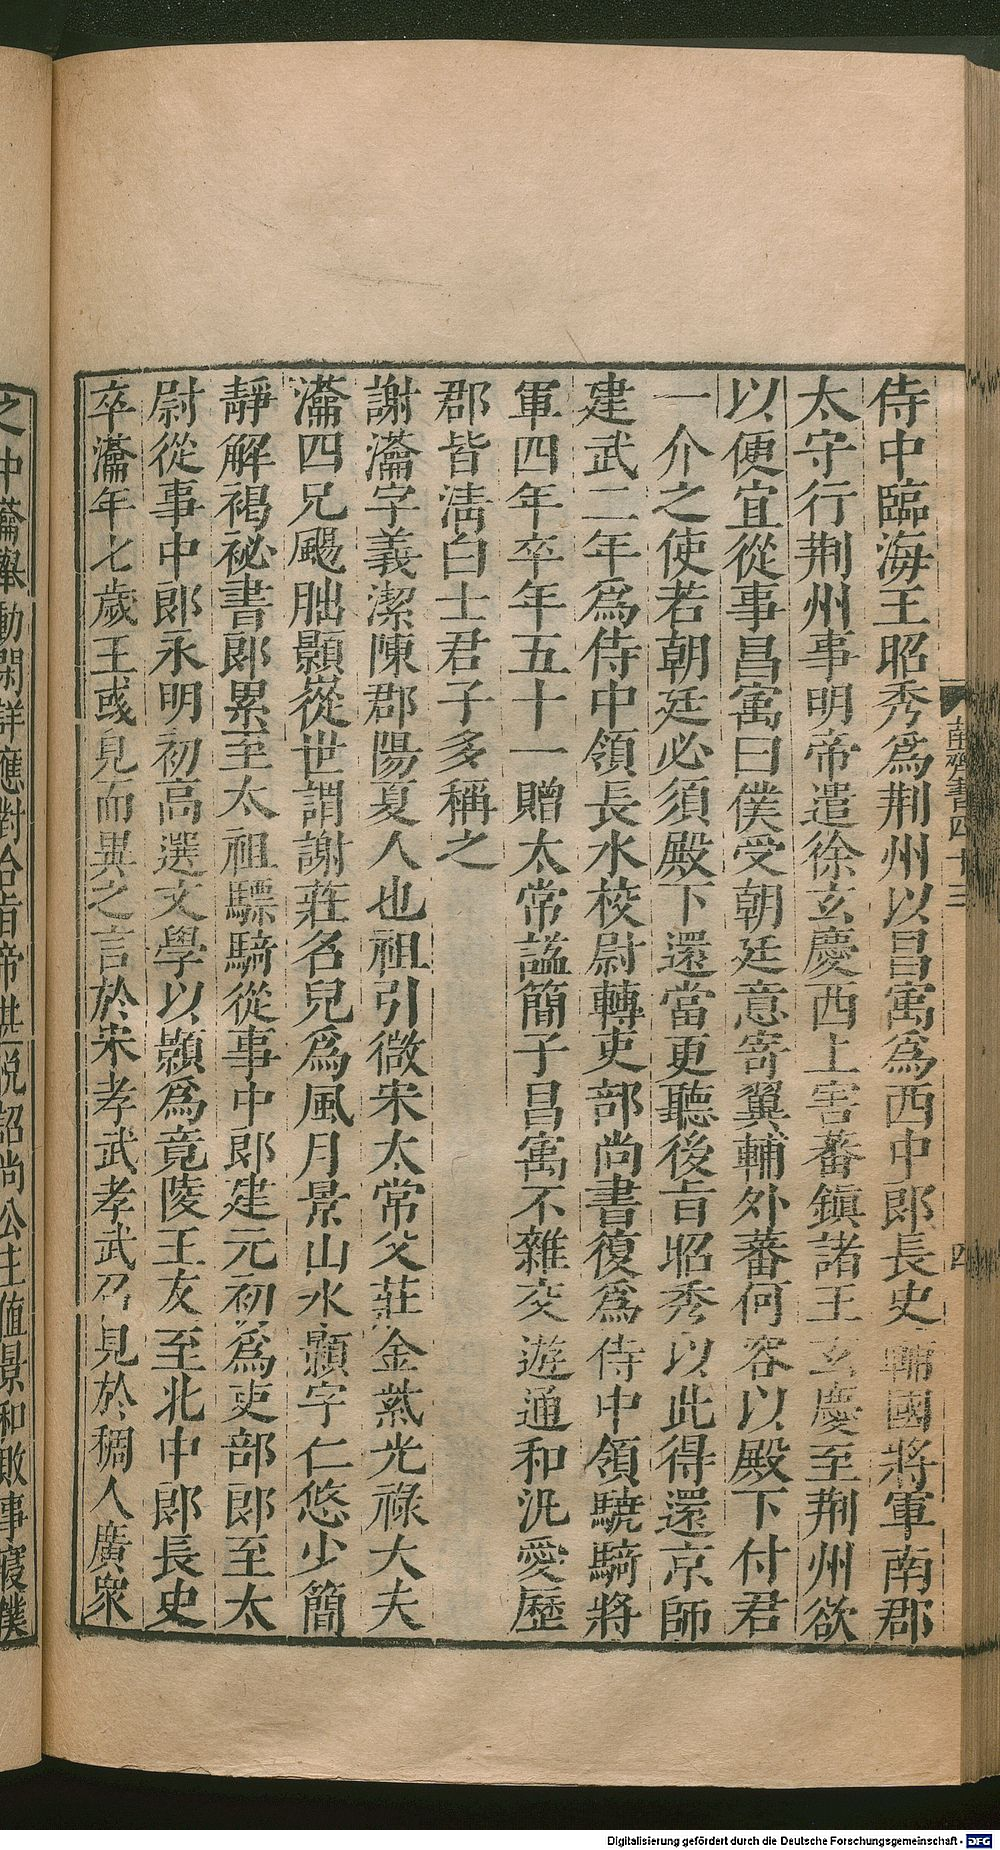 侍中臨海王昭秀爲荆州以昌㝢爲西中郎長史輔國將軍南郡
太守行荆州事明帝遣徐玄慶西上害蕃鎭諸王玄慶至荆州欲
以便宜從事昌㝢曰僕受朝廷意寄翼輔外蕃何容以殿下付君
一介之使若朝廷必須殿下還當更聽後旨昭秀以此得還京師
建武二年爲侍中領長水校尉轉吏部尚書復爲侍中領驍騎將
軍四年卒年五十一贈太常謚簡子昌㝢不雜交遊通和汎愛歷
郡皆淸白士君子多稱之
謝瀹字義潔陳郡陽夏人也祖引微宋太常父莊金紫光祿大夫
瀹四兄颺朏顥嵷世謂謝莊名兒爲風月景山水顥字仁悠少簡
靜解褐祕書郎累至太祖驃騎從事中郎建元初爲吏部郎至太
尉從事中郎永明初高選文學以顥爲竟陵王友至北中郎長史
卒瀹年七歲王彧見而異之言於宋孝武孝武召見於稠人廣衆
之中瀹舉動閑詳應對合旨帝甚悅詔尚公主値景和敗事寢僕
南齊書四十三
四
Digitalisierung gefördert durch die Deutsche Forschungsgemeinschaft - DFG